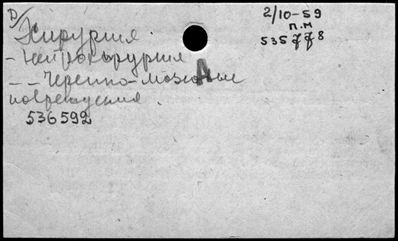 D/ Хирургия.
2/10-59
п.н
- Нейрохирургия
535778
-- Черепно-мозговые
А
повреждения.
536592